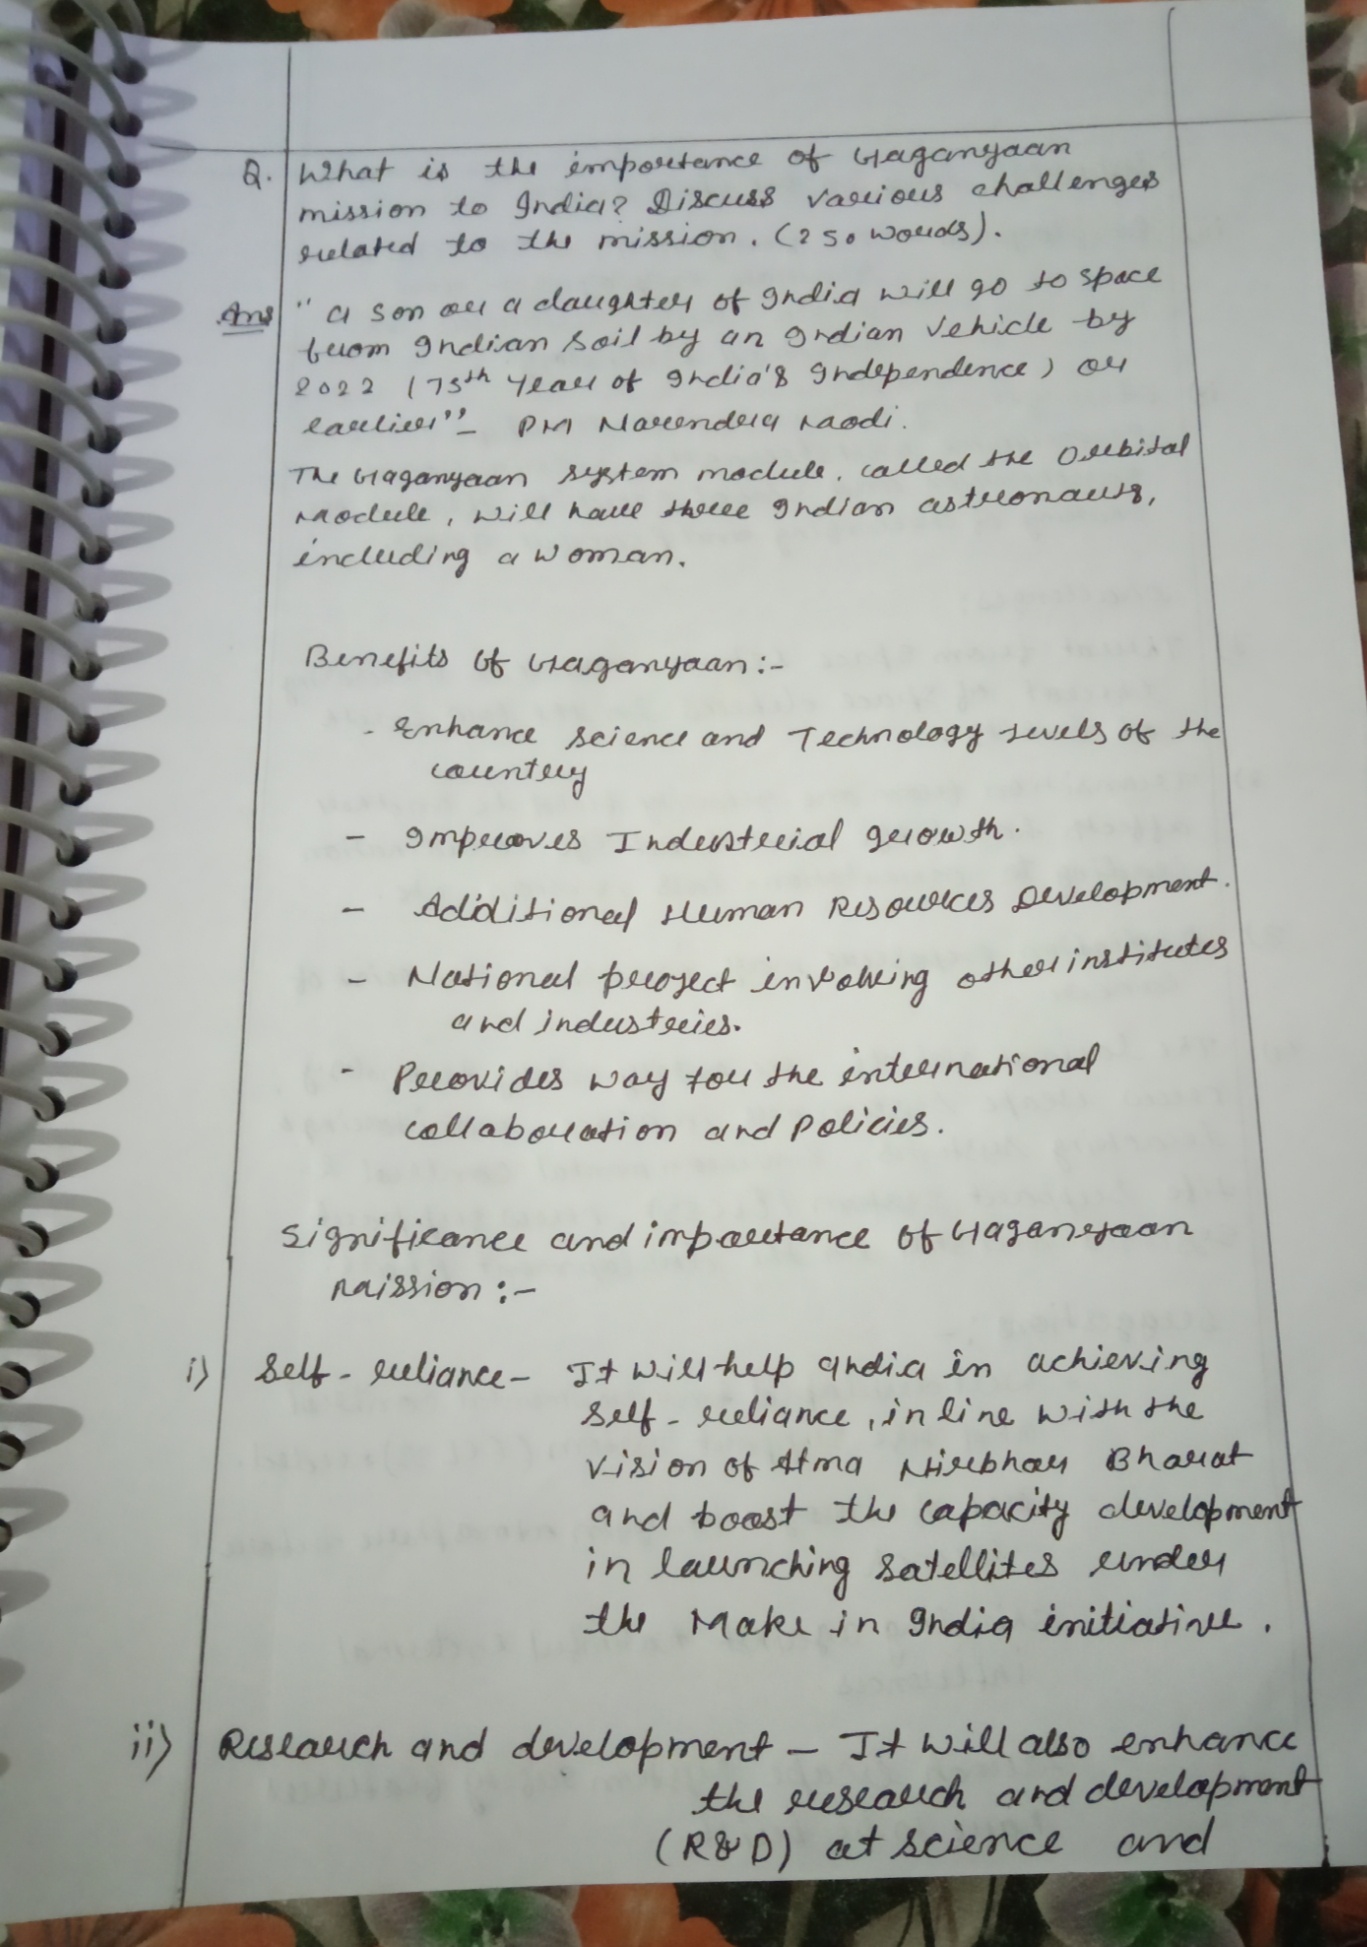 Q. What is the importance of Gaganyaan
mission to India? Discuss various challenges
related to the mission. (250 words).
Ans "A son or a daughter of India will go to space
from Indian soil by an Indian vehicle by
2022 (75th Year of India's Independence) or
earlier" - PM Narendra Modi.
The Gaganyaan system module, called the Orbital
Module, will have three Indian astronauts,
including a woman.
Benefits of Gaganyaan :-
- Enhance science and Technology levels of the
country
- Improves Industrial growth.
- Additional Human Resources Development.
- National project involving other institutes
and industries.
- Provides way for the international
collaboration and Policies.
Significance and importance of Gaganyaan
Mission :-
i) Self-reliance - It will help India in achieving
self-reliance, in line with the
vision of Atma Nirbhar Bharat
and boost the capacity development
in launching satellites under
the Make in India initiative.
ii) Research and development - It will also enhance
the research and development
(R&D) at science and